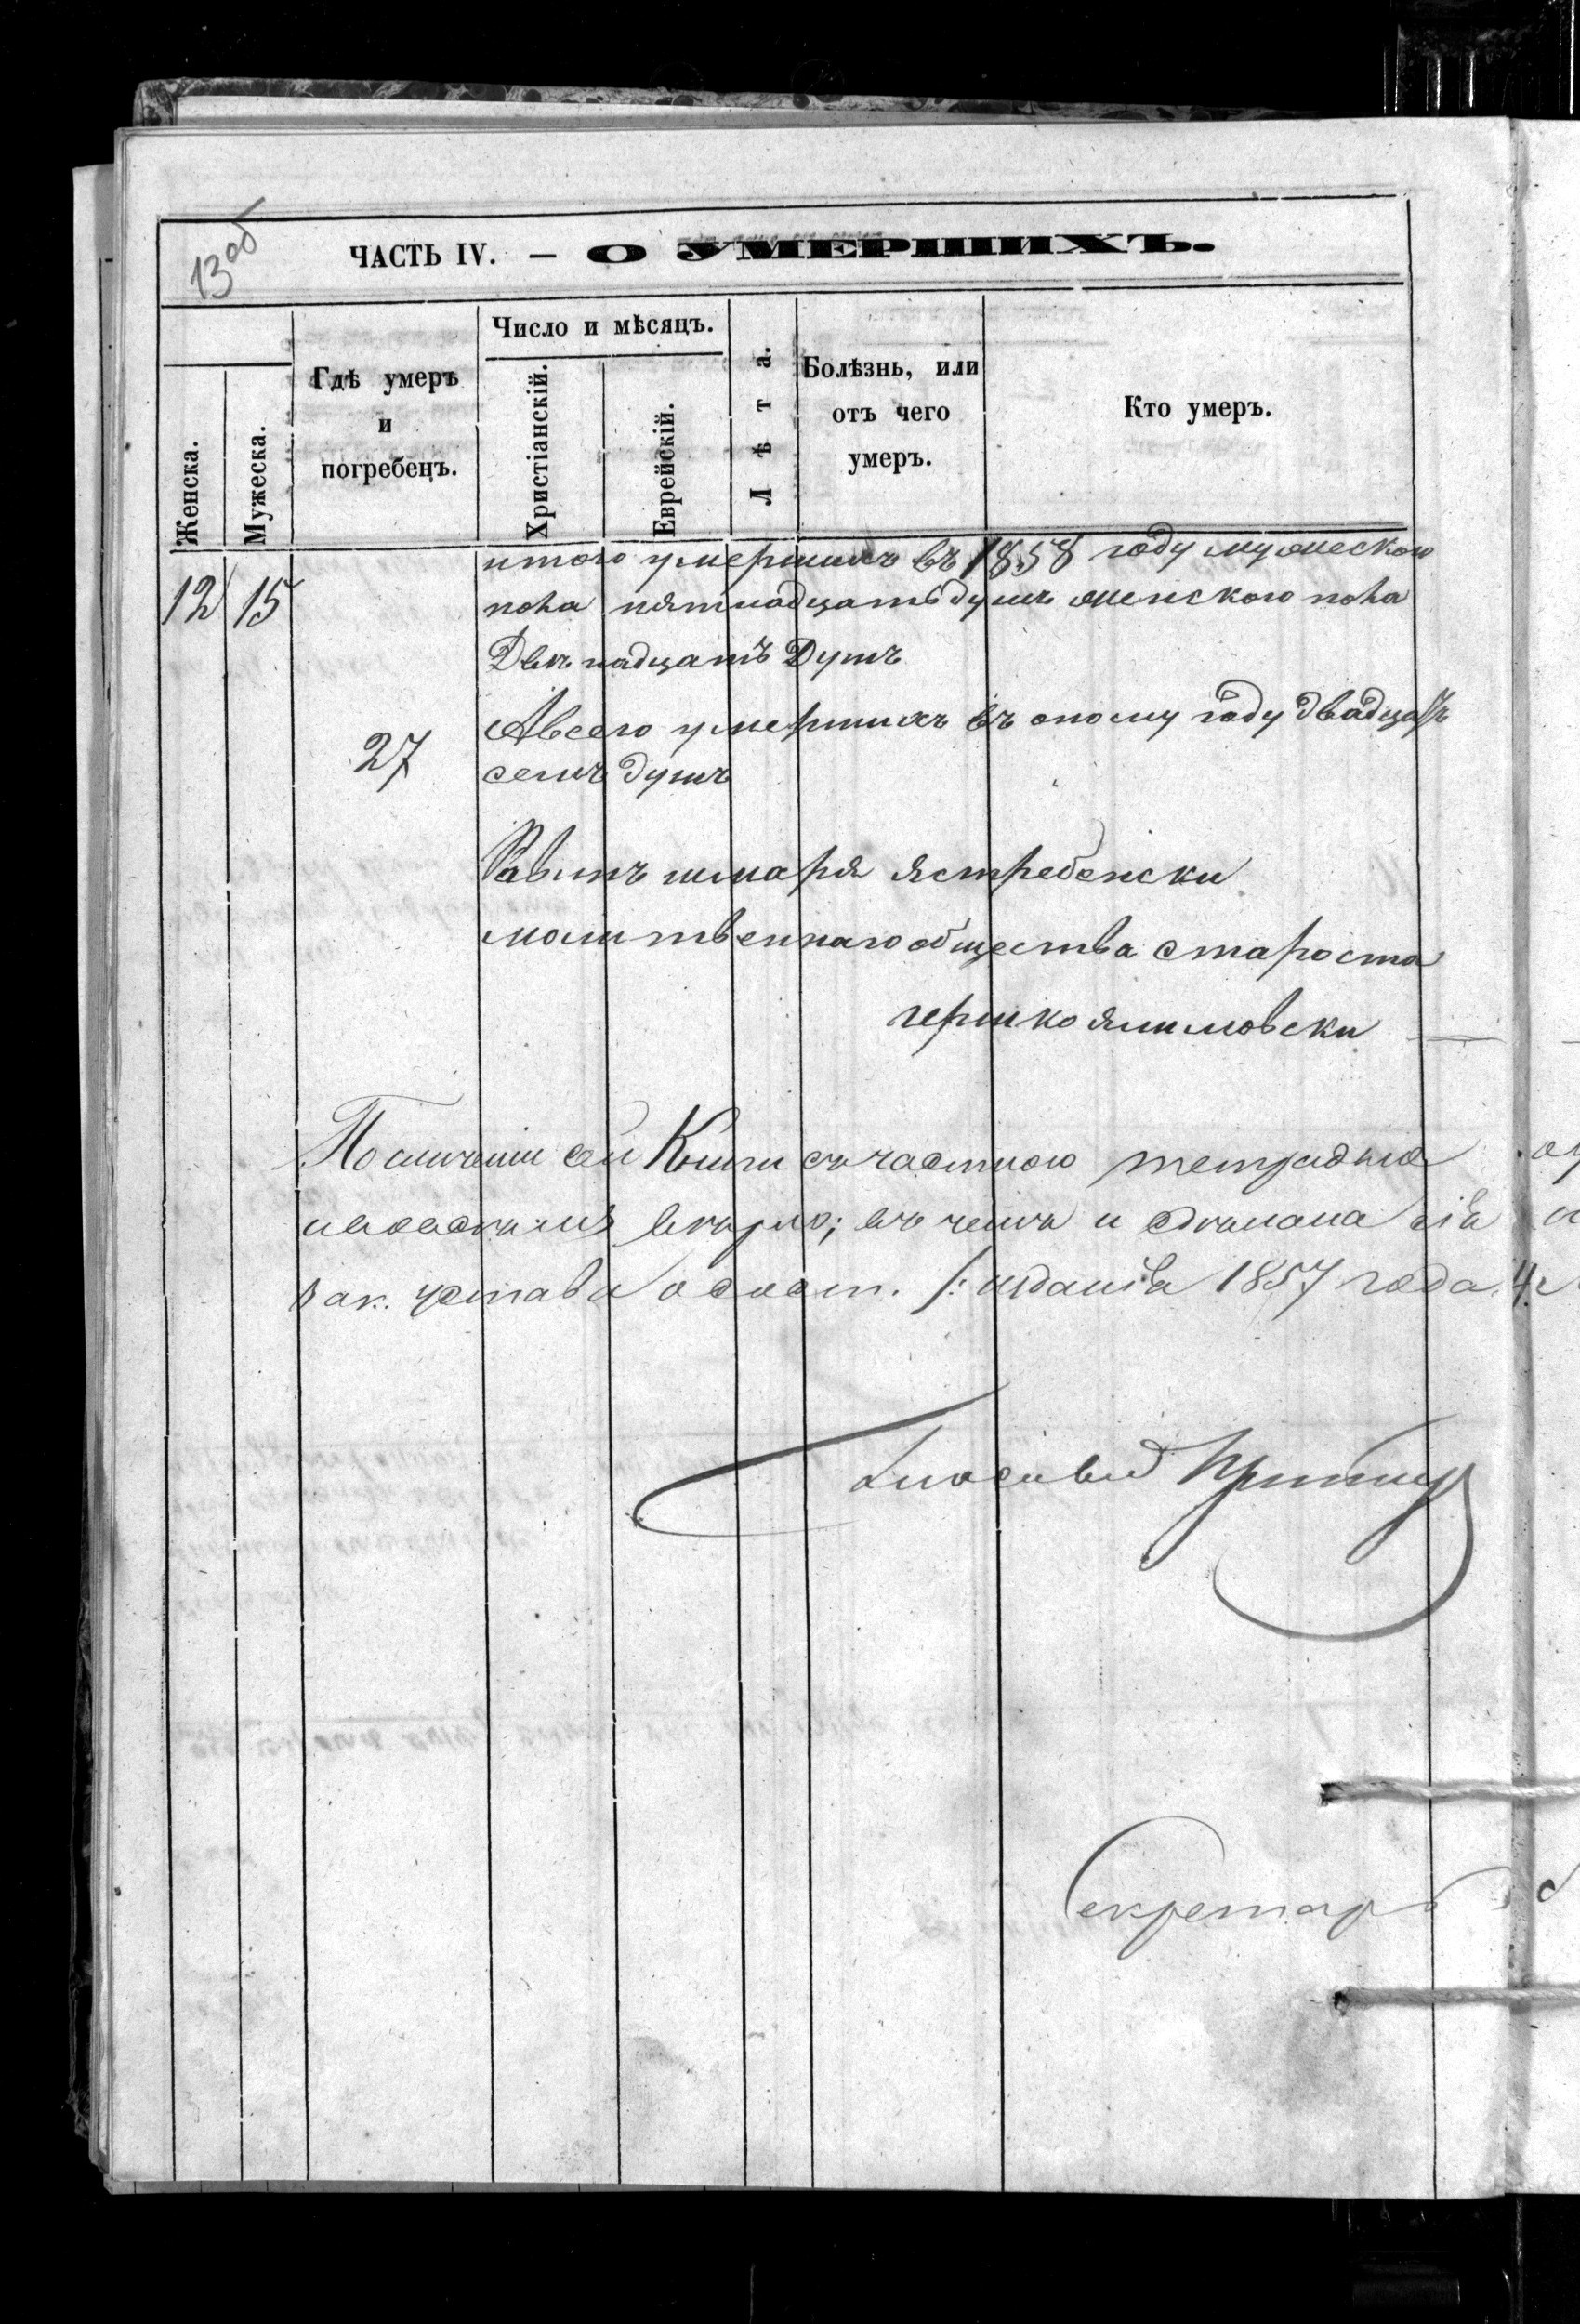 13 об
ЧАСТЬ IV. — О УМЕРШИХЪ.
Женска.
Мужеска.
Гдѣ умеръ
и
погребенъ.
Число и мѣсяцъ.
Христіанскій.
Еврейскій.
Лѣта.
Болѣзнь, или
отъ чего
умеръ.
Кто умеръ.
итого умершихъ въ 1858 году мужеского
12 15 пола пятнадцать душъ женского пола
Двенадцатъ Душъ
Авсего умершихъ въ ономy году двадцать
27 семъ душъ
Равинъ шмаря ястребенски
молитвенного общества староста
гершко
По сличеніи сей Книги съ частною тетрадью
вѣрно; въ чемъ и сдѣлана сія
зак. устава о сост. /: изданія 1857 года.
Гласный
Секретарь